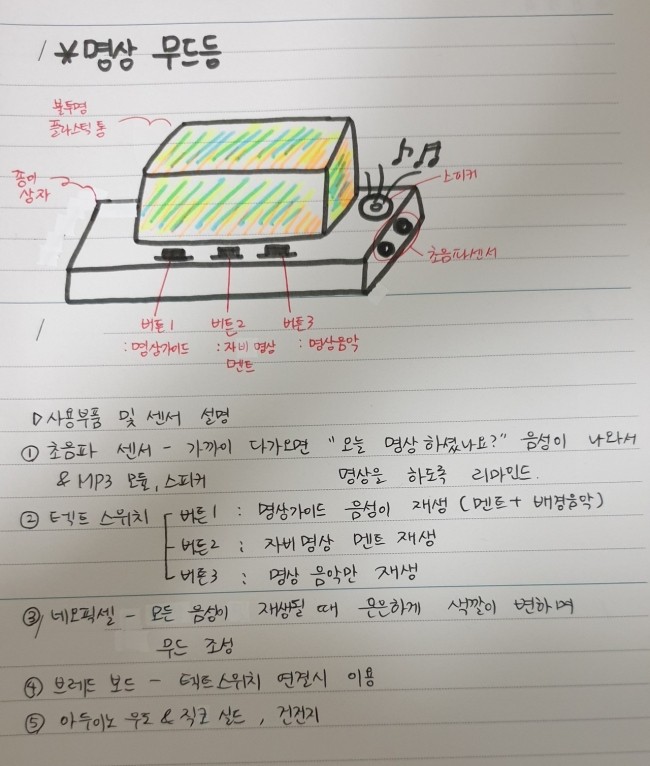 *명상 무드등
불투명
플라스틱 통
종이
상자
스피커
초음파센서
버튼1 버튼2 버튼3
:명상가이드 :자비 명상 :명상음악
멘트
▷사용부품 및 센서 설명
① 초음파 센서 - 가까이 다가오면 "오늘 명상하셨나요?" 음성이 나와서
& MP3 모듈, 스피커 명상을 하도록 리마인드.
② 텍트 스위치 버튼1 : 명상가이드 음성이 재생 (멘트+배경음악)
버튼2 : 자비명상 멘트 재생
버튼3 : 명상 음악만 재생
③ 네오픽셀 - 모든 음성이 재생될 때 은은하게 색깔이 변하며
무드 조성
④ 브레드 보드 - 텍트스위치 연결시 이용
⑤ 아두이노 우노 & 직코 실드, 건전지